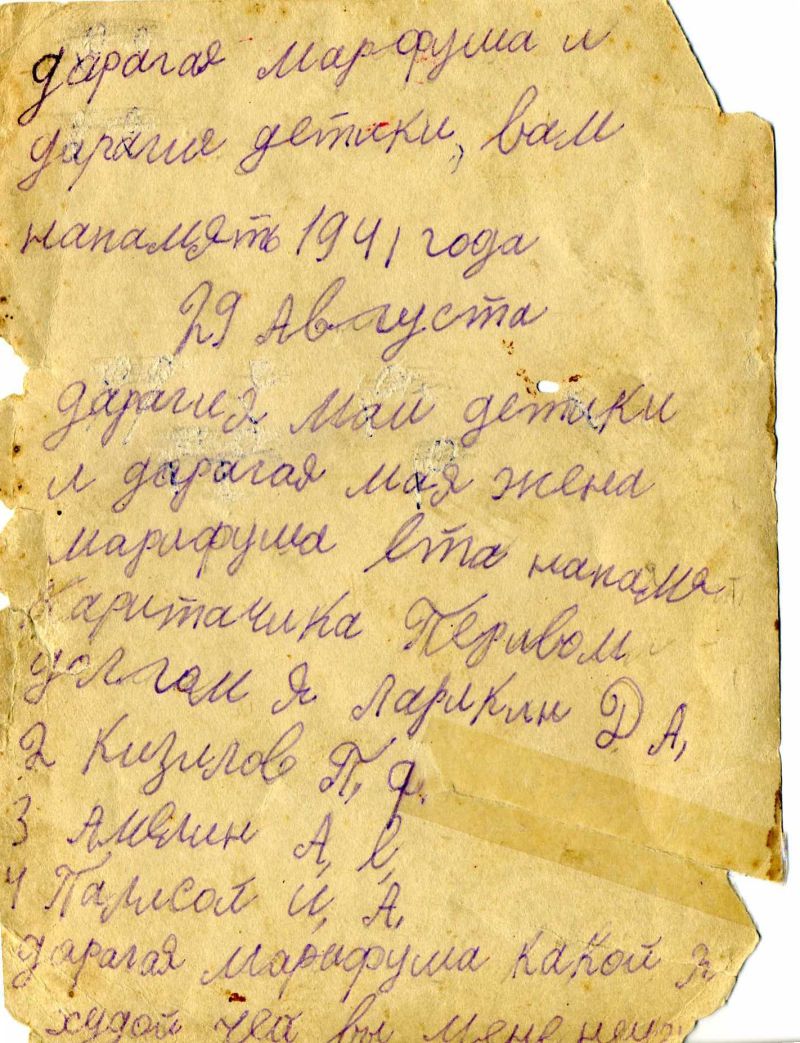 дарагая марфуша и
дарагия детики, вам
напамять 1941 года
29 Августа
дарагия маи детики
и дарагая мая жена
марифуша ета напамя
каритачика Перивом
долгом я Ларикин Д А,
2 Кизилов П, ф.
3 Амелин А, е,
4 Палисой и, А,
дарагая марифуша какой
худой чеа вы мене